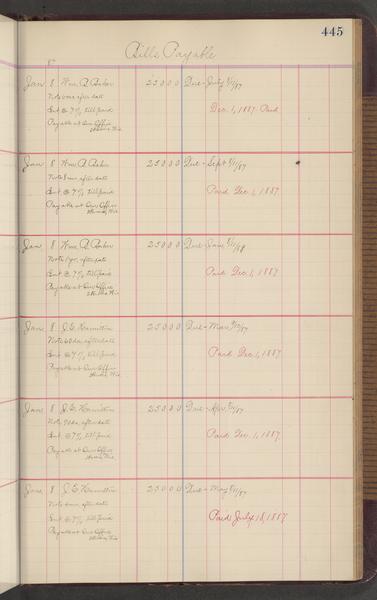 445
Bills Payable
Jan 8 Wm. A. Baker 250 0 0 Due - July 8/11/87
Note 6 mos after date
Int @ 7% till paid Dec. 1, 1887 Paid
Payable at Our Office
Jan 8 Wm. A. Baker 250 0 0 Due - Sept 8/11/87
Note 8 mos. after date
Int @ 7% till paid Paid Dec. 1, 1887.
Payable at Our Office
Jan 8 Wm. A. Baker 250 0 0 Due - Jan 8/11/88
Note 1 yr. after date
Int @ 7% till paid Paid Dec. 1, 1887
Payable at Our Office
Jan 8 J. E. Hamilton 250 0 0 Due - Mar 9/12/87
Note 60 da. after date
Int @ 7% till paid Paid Dec. 1, 1887
Payable at Our Office
Jan 8 J. E. Hamilton 250 0 0 Due - Apr.
Note 90 da. after date
Int @ 7% till paid Paid Dec. 1, 1887
Payable at Our Office
Jan 8 J. E. Hamilton 250 0 0 Due - May 8/11/87
Note 4 mos after date
Int @ 7% till paid Paid July 18, 1887
Payable at Our Office